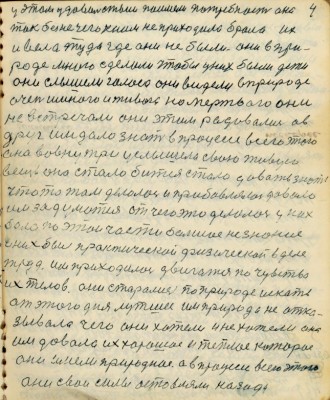 у этом удовольствии пошли потребност она
так бы не его ихним не приходило брала их
и вела туда где они не были. они в при-
роде много сделали чтобы у них были дети
они слышели голоса они видели в природе
очен много и живого но мертвого они
не встречали они этим радовалис а в
друг им дало знат в процесе всего этого
она вовнутри услышела свою живую
вещь она стало битися стало давать знат
что то там делалос и прибавлялос довало
им задуматся от чего это делалос у них
было до этой части болшое незнание
у них был практический физический в деле
труд. им приходилос двигатся по чувству
их телов, они старалис по природе искать
от этого дня лутшее им природа не отка-
зывала чего они хотели и не хотели она
им довала их хорошое и теплое которое
они имели природное. а в процесе всего этого
они свои силы оставляли назад